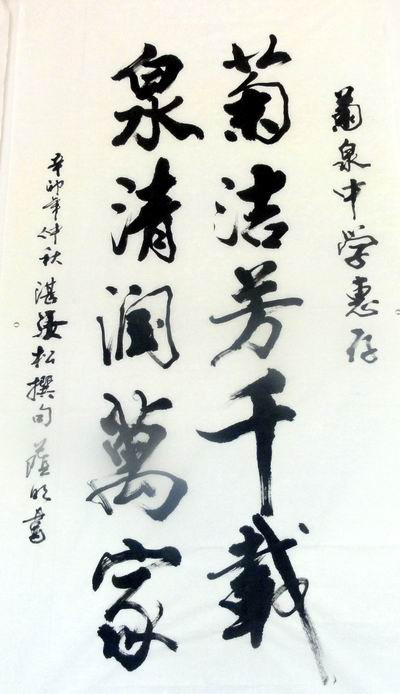 菊泉中学惠存
菊洁芳千载
泉清润萬家
辛卯年仲秋湛松撰句书